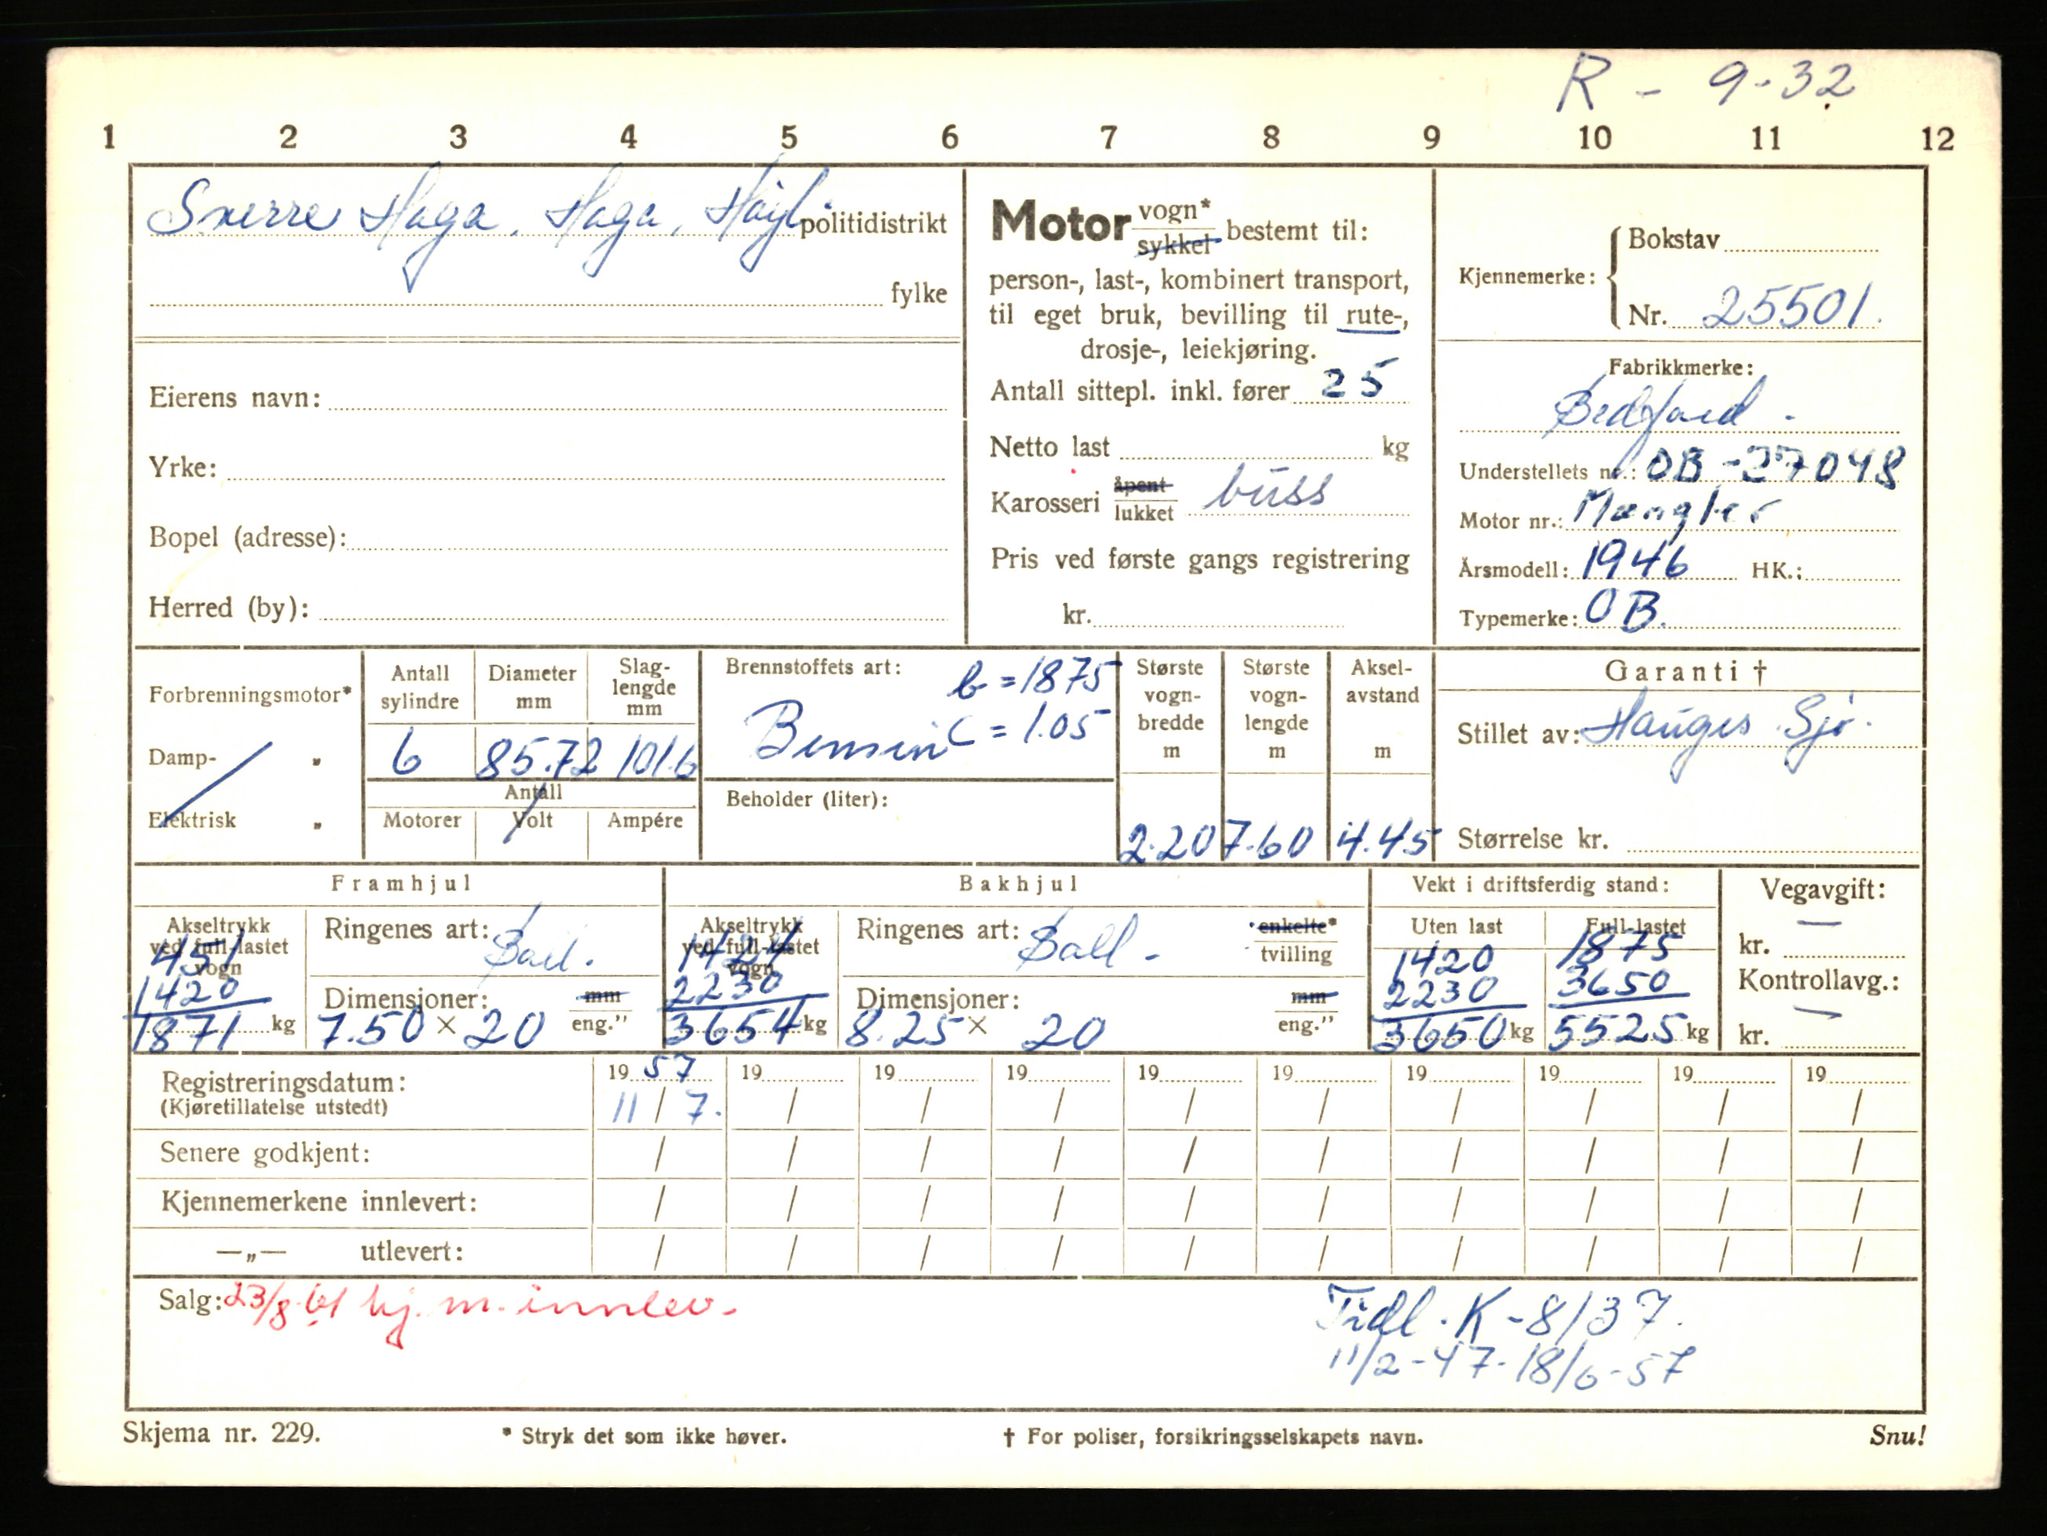 R - 9-32
1 2 3 4 5 6 7 8 9 10 11 12
Sverre Haga, Haga, Høyl. politidistrikt
fylke
Eierens navn:
Yrke:
Bopel (adresse):
Herred (by):
Motor vogn* sykkel bestemt til:
person-, last-, kombinert transport,
til eget bruk, bevilling til rute-,
drosje-, leiekjøring.
Antall sittepl. inkl. fører 25
Netto last kg
Karosseri åpent lukket buss
Pris ved første gangs registrering
kr.
Kjennemerke: Bokstav
Nr. 25501.
Fabrikkmerke:
Bedford -
Understellets nr.: OB-27048
Motor nr.: Mangler
Årsmodell: 1946 HK.:
Typemerke: OB.
Forbrenningsmotor*
Damp- „
Elektrisk „
Antall sylindre
6
Diameter mm
85.72
Slag-
lengde
mm
101.6
Antall
Motorer Volt Ampére
Brennstoffets art: b = 1875
Bensin C = 1.05
Beholder (liter):
Største
vogn-
bredde
m
2.20
Største
vogn-
lengde
m
7.60
Aksel-
avstand
m
4.45
Garanti †
Stillet av: Hauges Sjø.
Størrelse kr.
Framhjul
Akseltrykk
ved full-lastet
vogn
451
1420
1871 kg
Ringenes art: Ball.
Dimensjoner: mm
7.50 × 20 eng."
Bakhjul
Akseltrykk
ved full-lastet
vogn
1424
2230
3654 kg
Ringenes art: Ball - enkelte* tvilling
Dimensjoner: mm
8.25 × 20 eng."
Vekt i driftsferdig stand:
Uten last
1420
2230
3650 kg
Full-lastet
1875
3650
5525 kg
Vegavgift:
kr. —
Kontrollavg.:
kr. —
Registreringsdatum: 19 57 19 19 19 19 19 19 19 19 19
(Kjøretillatelse utstedt) 11 / 7. / / / / / / / / /
Senere godkjent: / / / / / / / / / /
Kjennemerkene innlevert: / / / / / / / / / /
—„— utlevert: / / / / / / / / / /
Salg: 23/8-61 kj. m. innlev.
Tidl. K-8137.
11/2-47-18/6-57
Skjema nr. 229.
* Stryk det som ikke høver.
† For poliser, forsikringsselskapets navn.
Snu!